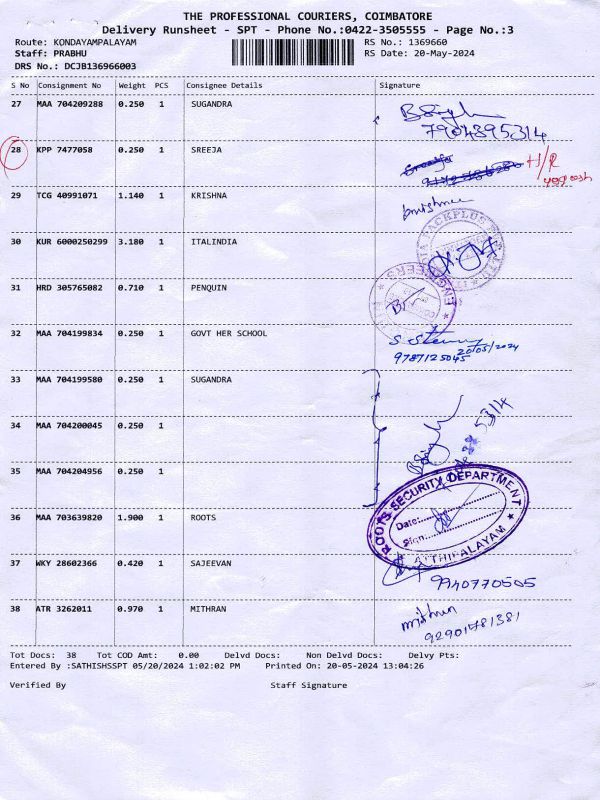 THE PROFESSIONAL COURIERS, COIMBATORE
Delivery Runsheet - SPT - Phone No.:0422-3505555 - Page No.:3
Route: KONDAYAMPALAYAM RS No.: 1369660
Staff: PRABHU RS Date: 20-May-2024
DRS No.: DCJB136966003
S No Consignment No Weight PCS Consignee Details Signature
27 MAA 704209288 0.250 1 SUGANDRA
7904395314
28 KPP 7477058 0.250 1 SREEJA
499 cash
29 TCG 40991071 1.140 1 KRISHNA
30 KUR 6000250299 3.180 1 ITALINDIA
31 HRD 305765082 0.710 1 PENQUIN
32 MAA 704199834 0.250 1 GOVT HER SCHOOL
20/05/2024
9787125045
33 MAA 704199580 0.250 1 SUGANDRA
34 MAA 704200045 0.250 1
35 MAA 704204956 0.250 1
ROOTS SECURITY DEPARTMENT
36 MAA 703639820 1.900 1 ROOTS
Date:
Sign:
ATHIPALAYAM
37 WKY 28602366 0.420 1 SAJEEVAN
9940770505
38 ATR 3262011 0.970 1 MITHRAN
mithun
92901781381
Tot Docs: 38 Tot COD Amt: 0.00 Delvd Docs: Non Delvd Docs: Delvy Pts:
Entered By :SATHISHSSPT 05/20/2024 1:02:02 PM Printed On: 20-05-2024 13:04:26
Verified By Staff Signature